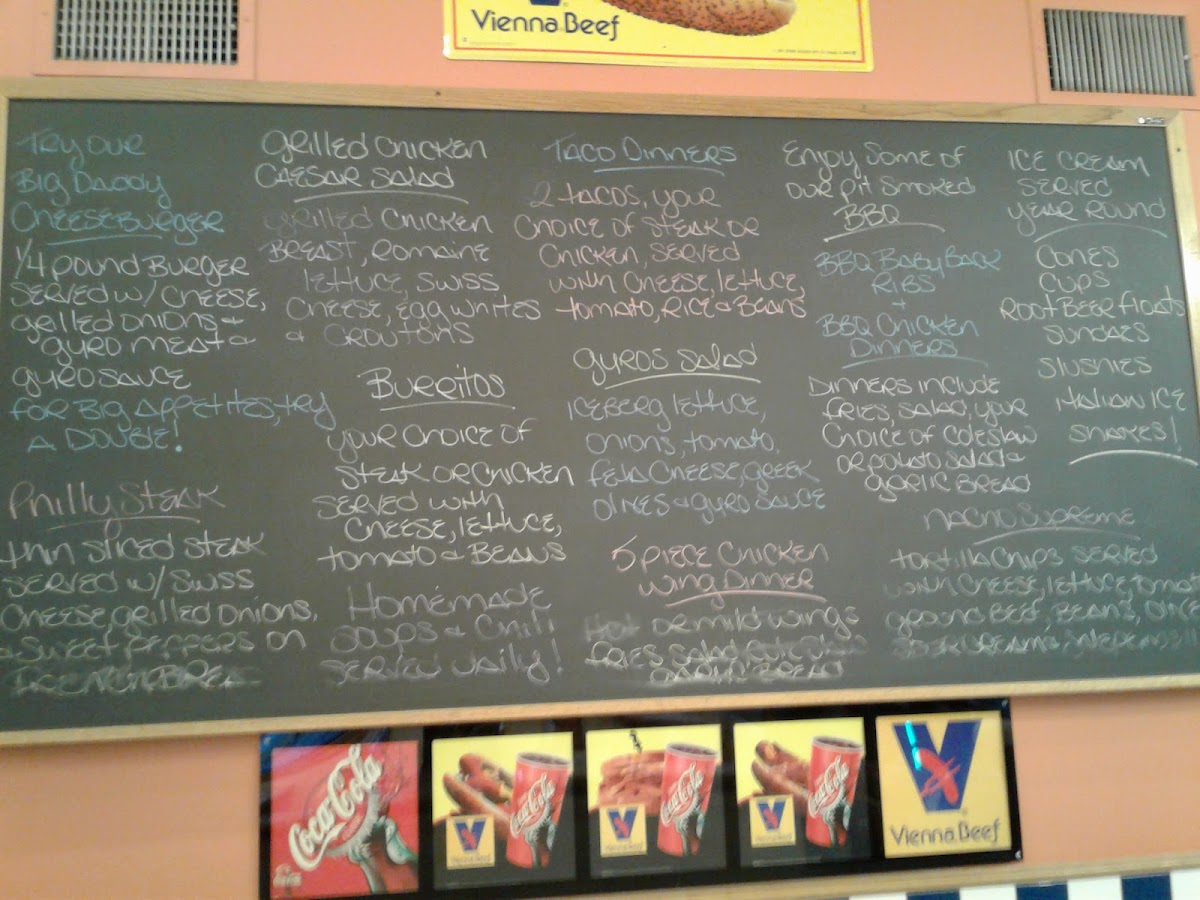 Vienna Beef
Try our
Big Daddy
Cheeseburger
1/4 pound Burger
served w/ cheese,
grilled onions &
gyro meat &
gyro sauce
for Big Appetites, try
A Double!
Philly Steak
thin sliced steak
served w/ Swiss
cheese, grilled onions,
& sweet peppers on
French Bread
Grilled Chicken
Caesar Salad
grilled chicken
Breast, Romaine
lettuce, swiss
cheese, egg whites
& croutons
Burritos
your choice of
steak or chicken
served with
cheese, lettuce,
tomato & Beans
Homemade
soups & Chili
served daily!
Taco Dinners
2 tacos, your
choice of steak or
chicken, served
with cheese, lettuce,
tomato, rice & Beans
Gyros Salad
iceberg lettuce,
onions, tomato,
feta cheese, greek
olives & gyro sauce
5 piece Chicken
Wing Dinner
Hot or mild wings
fries, salad,
garlic Bread
Enjoy some of
our pit smoked
BBQ
BBQ Baby Back
Ribs
+
BBQ Chicken
Dinners
Dinners include
fries, salad, your
choice of coleslaw
or potato salad &
garlic Bread
Ice Cream
served
year round
Cones
Cups
Root Beer floats
Sundaes
Slushies
Italian Ice
Shakes!
Nacho Supreme
tortilla chips served
with cheese, lettuce, tomato
ground beef, Beans, olives
sour cream &
Coca-Cola
Coca-Cola
Vienna Beef
Coca-Cola
Coca-Cola
Vienna Beef